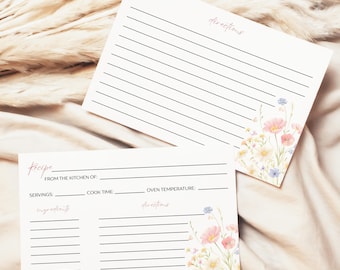 directions
Recipe
FROM THE KITCHEN OF:
SERVINGS: COOK TIME: OVEN TEMPERATURE:
ingredients directions